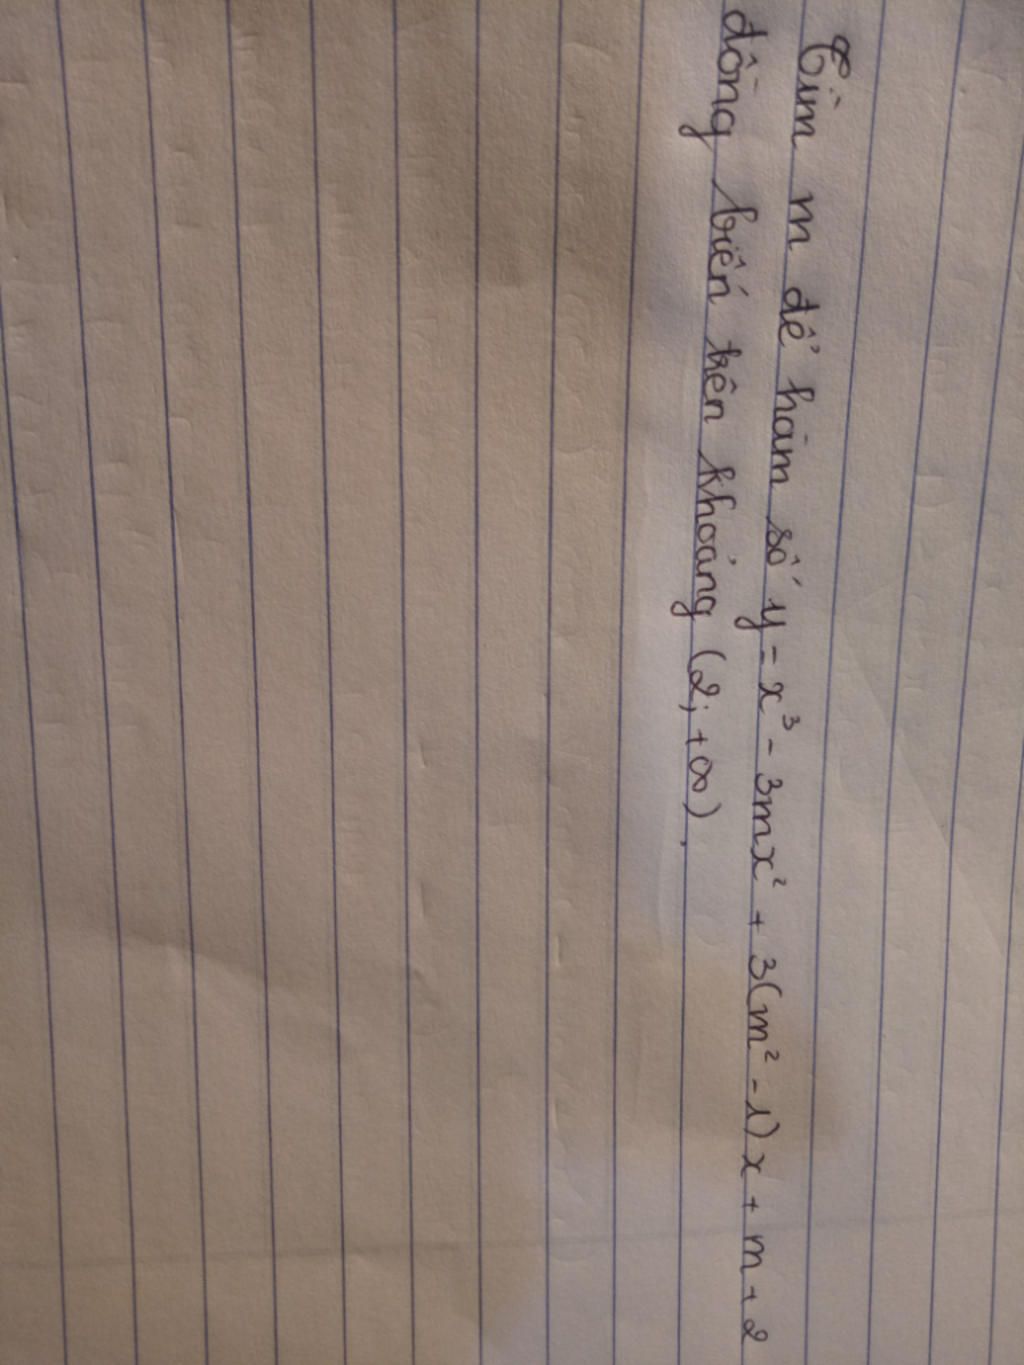 Tìm m để hàm số y = x³ - 3mx² + 3(m² - 1)x + m + 2
đồng biến trên khoảng (2; +∞).